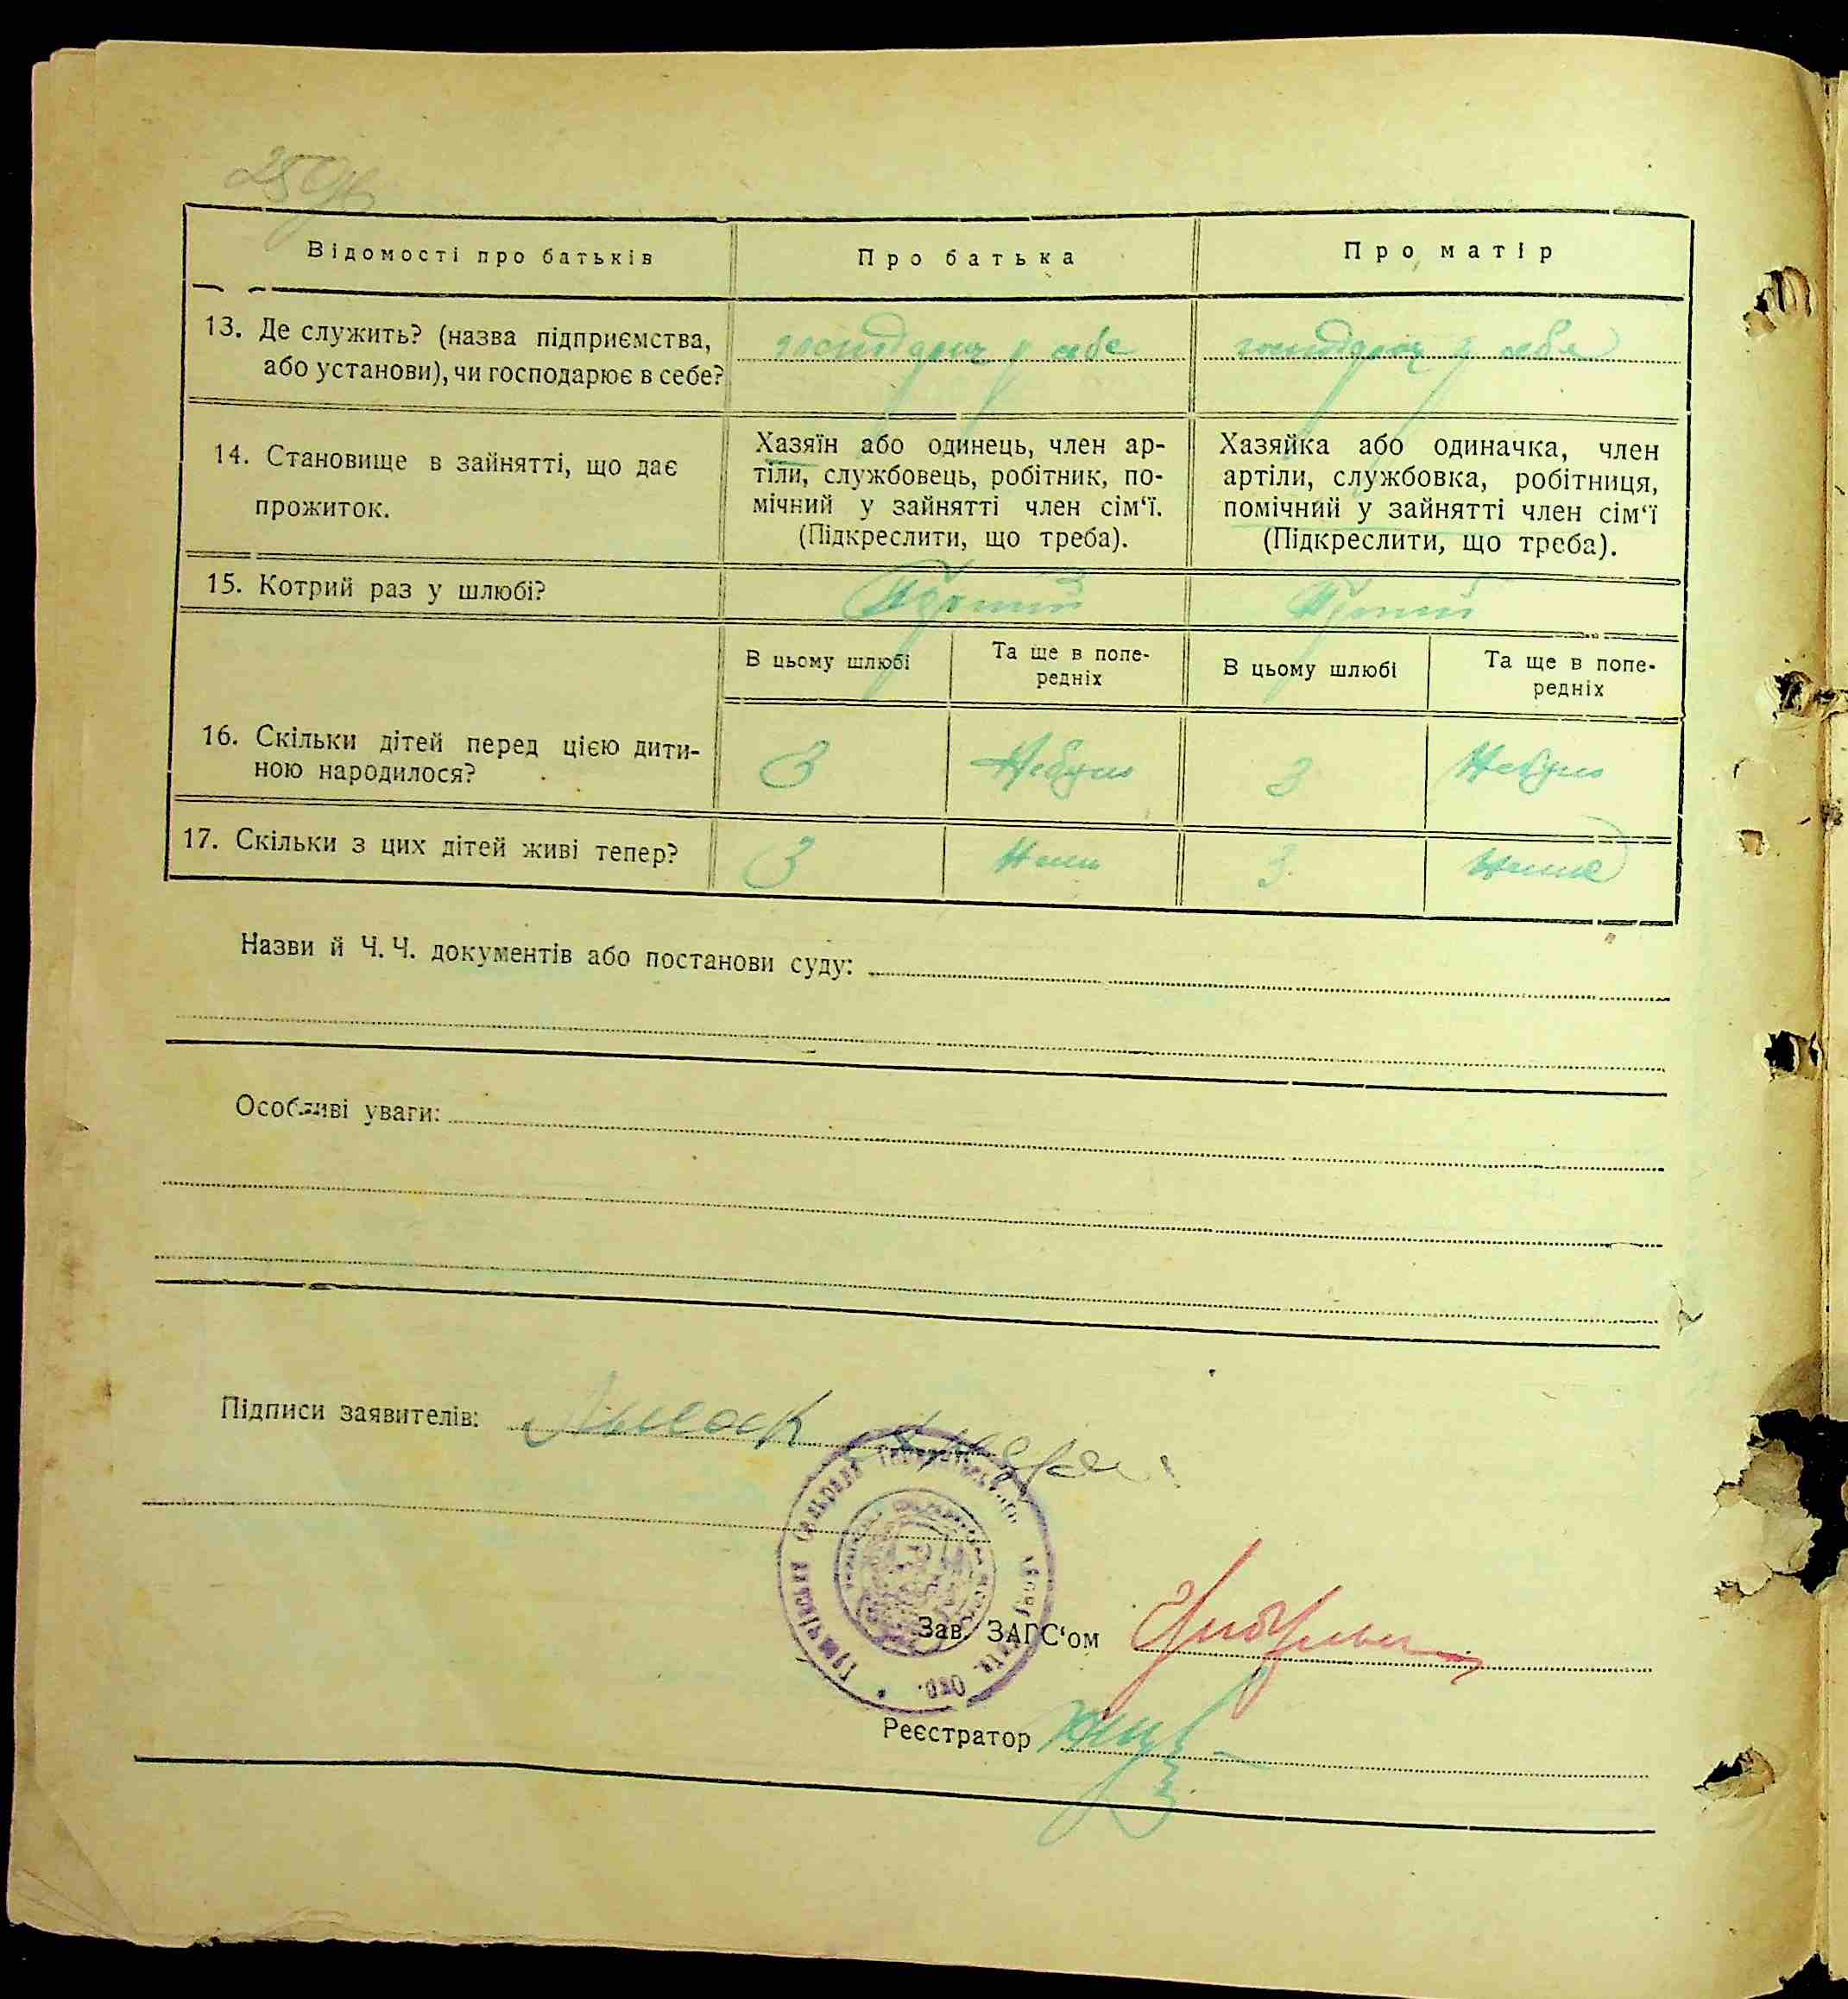 Відомості про батьків
Про батька
Про матір
13. Де служить? (назва підприємства,
або установи), чи господарює в себе?
господарює у себе
господарює у себе
14. Становище в зайнятті, що дає
прожиток.
Хазяїн або одинець, член ар-
тіли, службовець, робітник, по-
мічний у зайнятті член сім‘ї.
(Підкреслити, що треба).
Хазяйка або одиначка, член
артіли, службовка, робітниця,
помічний у зайнятті член сім‘ї
(Підкреслити, що треба).
15. Котрий раз у шлюбі?
В цьому шлюбі
Та ще в попе-
редніх
В цьому шлюбі
Та ще в попе-
редніх
16. Скільки дітей перед цією дити-
ною народилося?
3
Небуло
3
Небуло
17. Скільки з цих дітей живі тепер?
3
3
Назви й Ч. Ч. документів або постанови суду:
Особливі уваги:
Підписи заявителів:
Зав. ЗАГС‘ом
Реєстратор